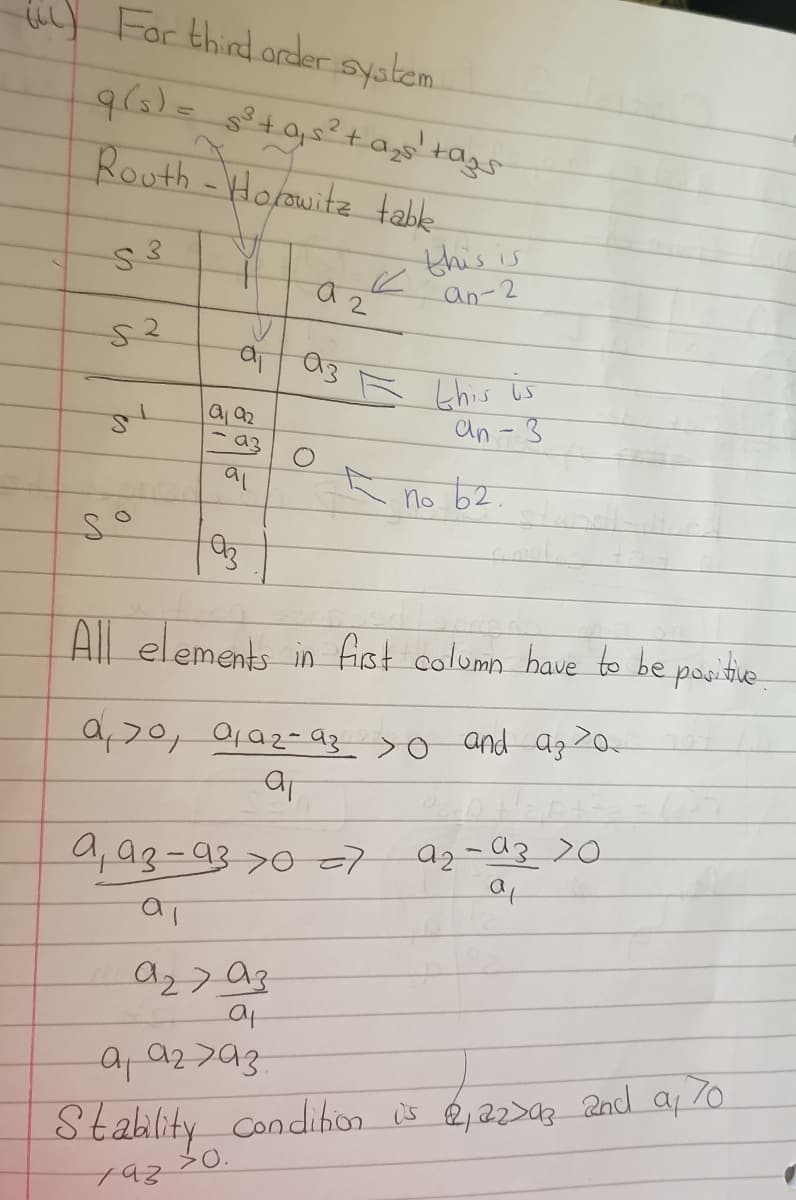 iii) For third order system
q(s) = s³ + a₁s² + a₂s¹ + a₃s
Routh - Horowitz table
s³ | 1 | a₂ ⇐ this is
an-2
s² | a₁ | a₃ ⇐ this is
an-3
s¹ | a₁a₂
-a₃
a₁ | 0 ⇐ no b2.
s⁰ | a₃
All elements in first column have to be positive.
a₁>0, a₁a₂-a₃ / a₁ >0 and a₃>0.
a₁a₃-a₃ / a₁ >0 => a₂ - a₃ / a₁ >0
a₂ > a₃ / a₁
a₁ a₂ > a₃
Stability condition is a₁a₂>a₃ and a₁>0
, a₃ >0.